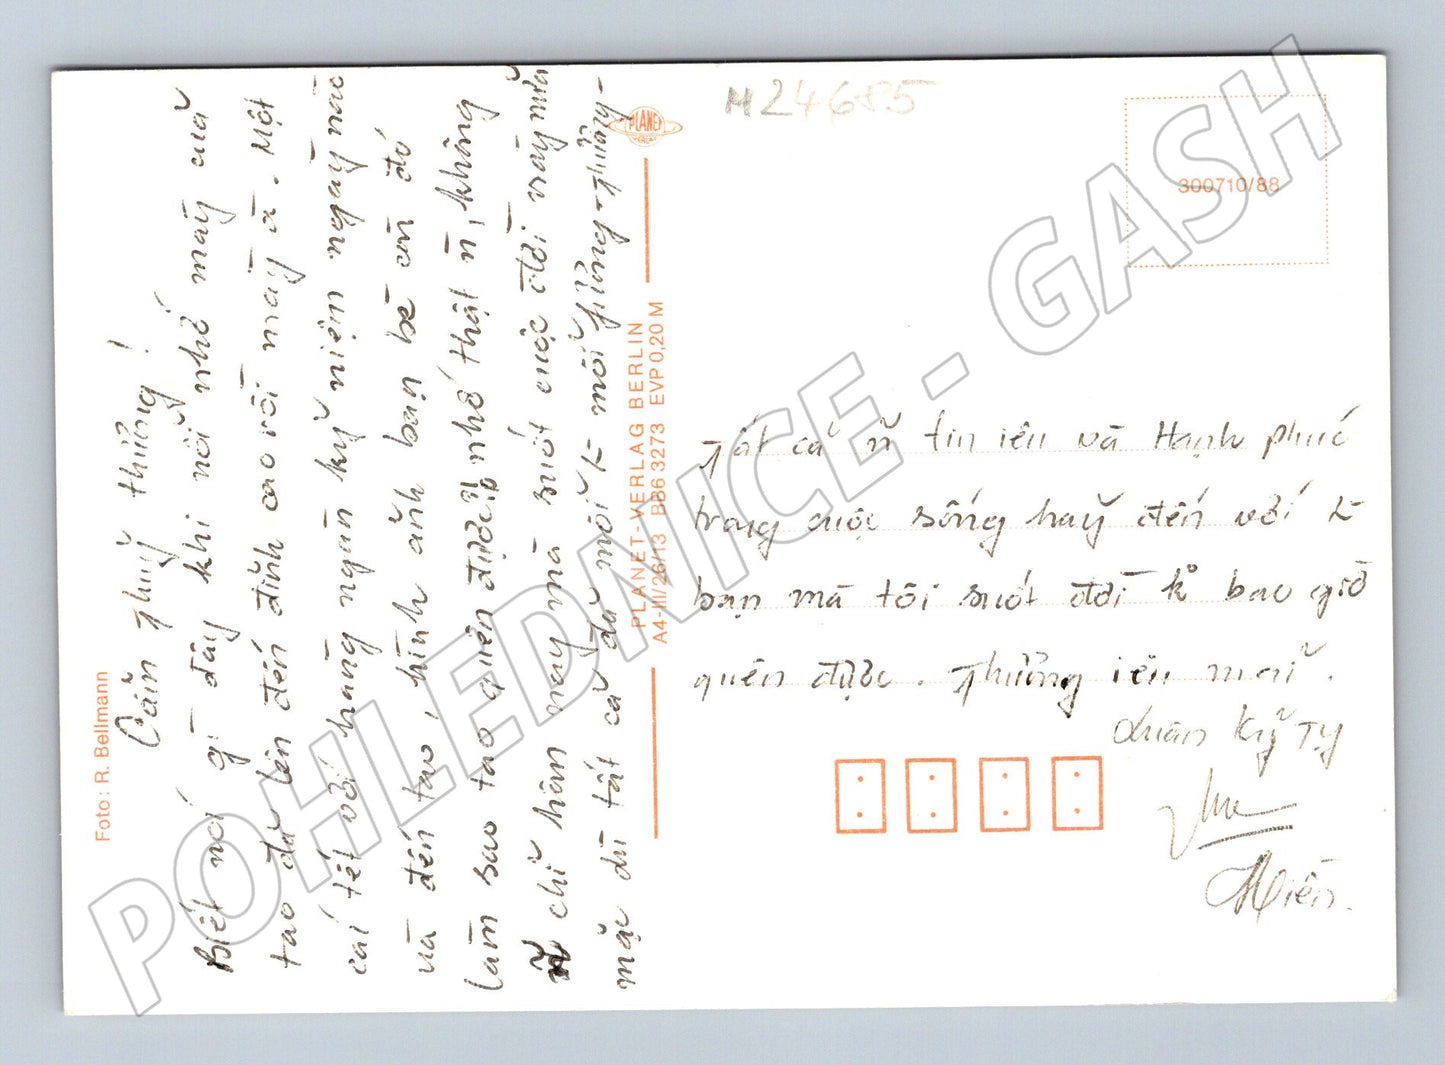 Cẩm Thuỷ thương!
Biết nói gì đây khi nỗi nhớ mày của
tao đã lên đến đỉnh cao rồi mày ạ. Một
cái tết với hàng ngàn kỷ niệm ngày nào
và đến tao, hình ảnh bạn bè cũ đó
làm sao tao quên được? nhớ thật ñ, không
chỉ hôm nay mà suốt cuộc đời này nữa
mặc dù tất cả đã mỗi đứa mỗi phương
Tất cả ñ tin yêu và Hạnh phúc
trong cuộc sống hãy đến với
bạn mà tôi suốt đời k° bao giờ
quên được. Thương yêu mãi.
Xuân Kỷ Tỵ
Hiền.
Foto: R. Bellmann
PLANET
VERLAG
PLANET-VERLAG BERLIN
A4-III/26/13 BB6 3273 EVP 0,20 M
H24685
300710/88
POHLEDNICE - GASH